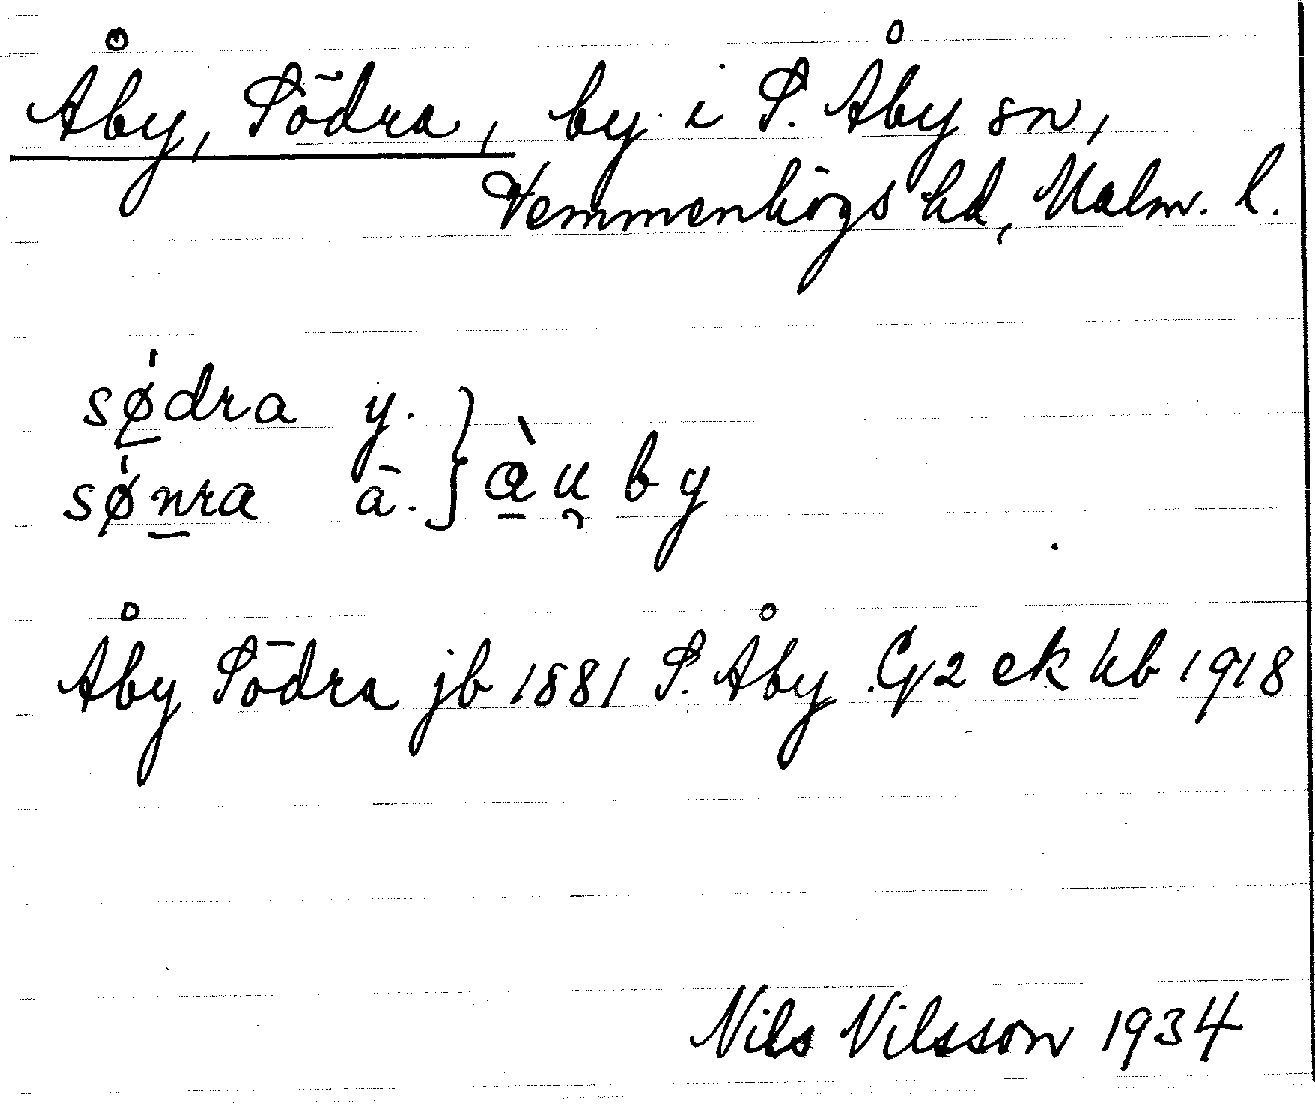 Åby, Södra, by i S. Åby sn,
Vemmenhögs hd, Malm. l.
sǿ̠dra y. } à̠u̯by
sǿn̠ra ä.
Åby Södra jb 1881 S. Åby G2 ek kb 1918
Nils Nilsson 1934